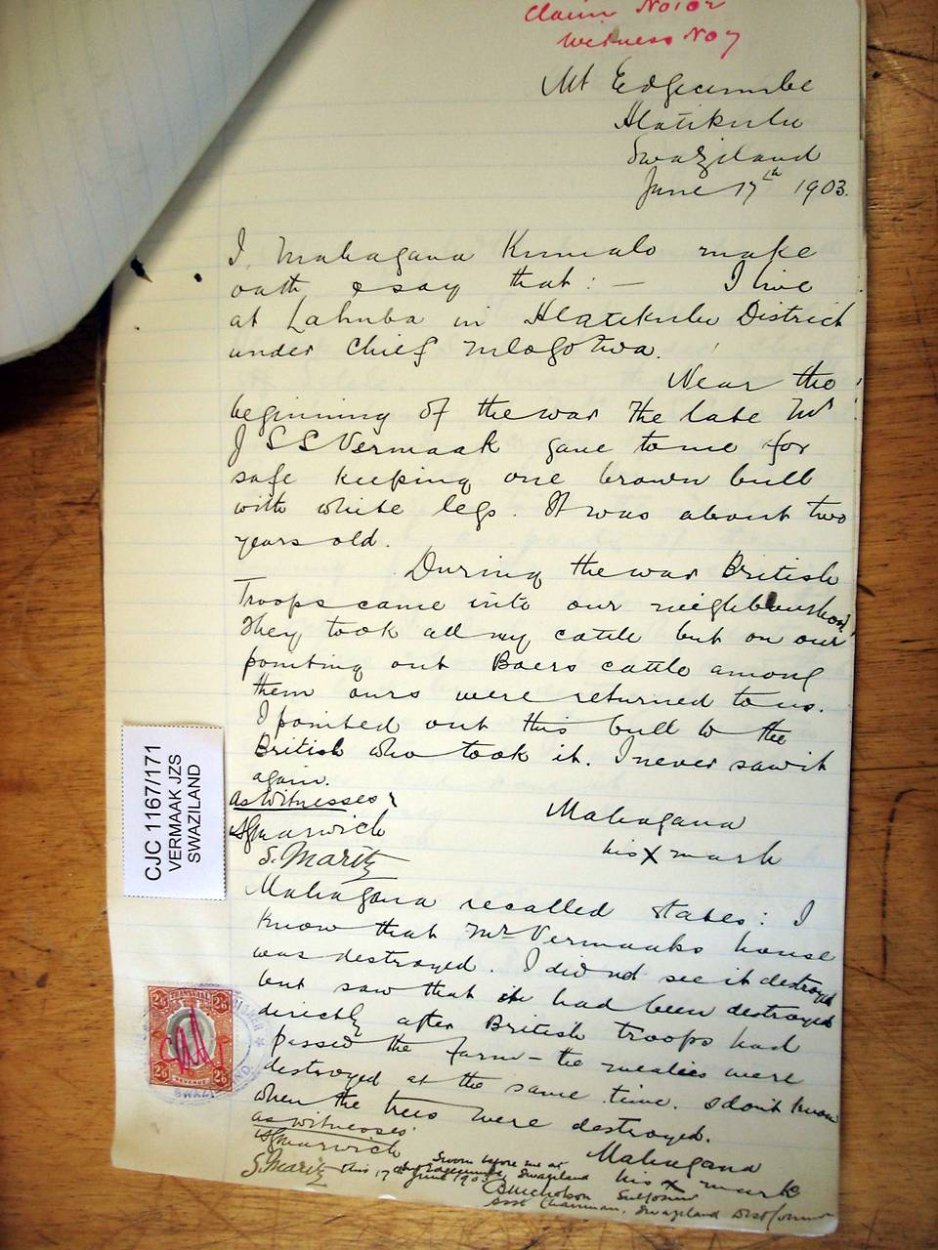 Claim No 102
Witness No 7
Mt Edgecumbe
Hlatikulu
Swaziland
June 17th 1903.
I, Mahagana Kumalo make
oath & say that: — I live
at Lahuba in Hlatikulu District
under chief Mlogotwa.
Near the
beginning of the war the late Mr
J S S Vermaak gave to me for
safe keeping one brown bull
with white legs. It was about two
years old.
During the war British
Troops came into our neighbourhood,
They took all my cattle but on our
pointing out Boers cattle among
them ours were returned to us.
I pointed out this bull to the
British who took it. I never saw it
again.
as witnesses
Marwick
S. Maritz
Mahagana
his X mark
Mahagana recalled states: I
know that Mr Vermaaks house
was destroyed. I did not see it destroyed
but saw that it had been destroyed
directly after British troops had
passed the farm — the mealies were
destroyed at the same time. I don't know
when the trees were destroyed.
as witnesses
Marwick
S. Maritz
Mahagana
his X mark
Sworn before me at
Mt Edgecumbe, Swaziland
this 17th June 1903
Nicholson
Asst Chairman, Swaziland Dist Comm
CJC 1167/171
VERMAAK JZS
SWAZILAND
2/6 TRANSVAAL 2/6
2/6 REVENUE 2/6